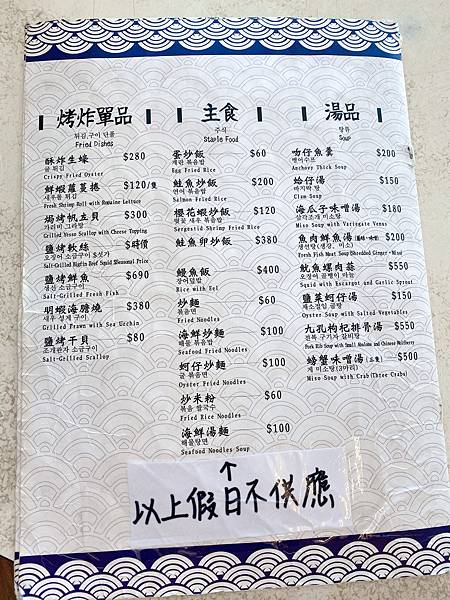 烤炸單品
튀김,구이 단품
Fried Dishes
酥炸生蠔 $280
굴 튀김
Crispy Fried Oyster
鮮蝦蘿蔓捲 $120/隻
새우롤 튀김
Fresh Shrimp Roll with Romaine Lettuce
焗烤帆立貝 $300
가리비 그라탕
Grilled Yesso Scallop with Cheese Topping
鹽烤軟絲 $時價
오징어 소금구이 $싯가
Salt-Grilled Bigfin Reef Squid $Seasonal Price
鹽烤鮮魚 $690
생선 소금구이
Salt-Grilled Fresh Fish
明蝦海膽燒 $380
새우 성게 구이
Grilled Prawn with Sea Urchin
鹽烤干貝 $80
조개관자 소금구이
Salt-Grilled Scallop
主食
주식
Staple Food
蛋炒飯 $60
계란 볶음밥
Egg Fried Rice
鮭魚炒飯 $200
연어 볶음밥
Salmon Fried Rice
櫻花蝦炒飯 $200
벚꽃 새우 볶음밥
Sergestid Shrimp Fried Rice
鮭魚卵炒飯 $380
鰻魚飯 $400
장어덮밥
Rice with Eel
炒麵 $60
볶음면
Fried Noodles
海鮮炒麵 $100
해물 볶음면
Seafood Fried Noodles
蚵仔炒麵 $100
굴 볶음면
Oyster Fried Noodles
炒米粉 $60
볶음 쌀국수
Fried Rice Noodles
海鮮湯麵 $100
해물탕면
Seafood Noodles Soup
湯品
탕류
Soup
吻仔魚羹 $200
뱅어수프
Anchovy Thick Soup
蛤仔湯 $150
바지락 탕
Clam Soup
海瓜子味噌湯 $200
살각조개 미소탕
Miso Soup with Variegate Venus
魚肉鮮魚湯 $200
생선탕
Fresh Fish Meat Soup (Shredded Ginger、Miso)
魷魚螺肉蒜 $550
오징어 골뱅이 마늘
Squid with Escargot and Garlic Sprout
鹽菜蚵仔湯 $150
채소절임 굴탕
Oyster Soup with Salted Vegetables
九孔枸杞排骨湯 $550
전복 구기자 갈비탕
Pork Rib Soup with Small Abalone and Chinese Wolfberry
螃蟹味噌湯(三隻) $500
게 미소탕(3마리)
Miso Soup with Crab (Three Crabs)
↑
以上假日不供應